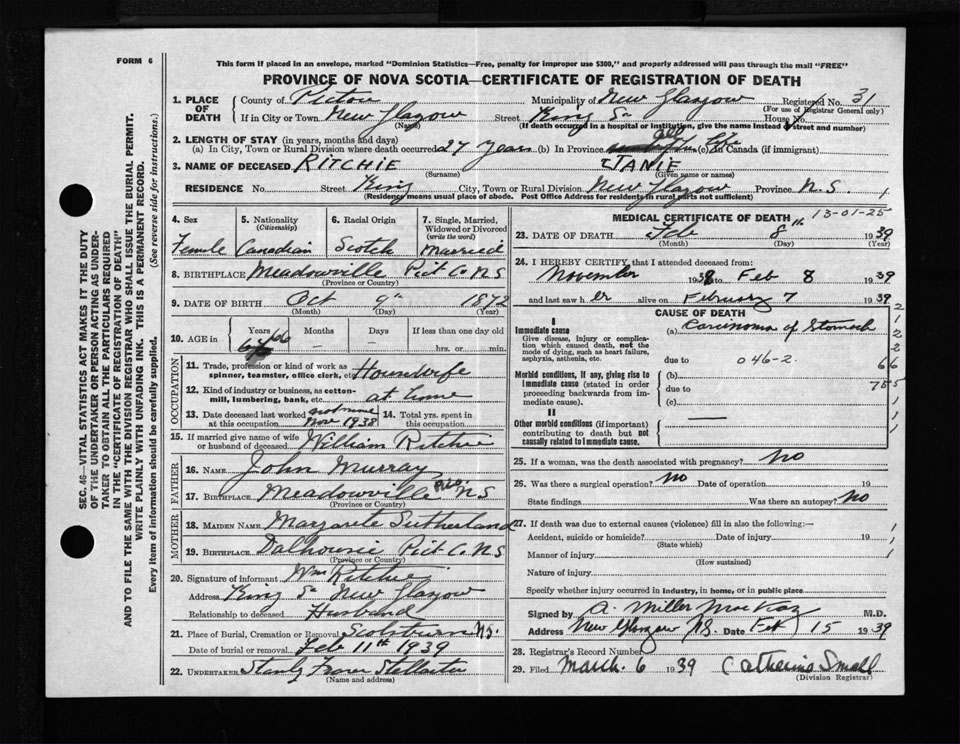 FORM 6
This form if placed in an envelope, marked "Dominion Statistics—Free, penalty for improper use $300," and properly addressed will pass through the mail "FREE"
PROVINCE OF NOVA SCOTIA—CERTIFICATE OF REGISTRATION OF DEATH
SEC. 46—VITAL STATISTICS ACT MAKES IT THE DUTY
OF THE UNDERTAKER OR PERSON ACTING AS UNDER-
TAKER TO OBTAIN ALL THE PARTICULARS REQUIRED
IN THE "CERTIFICATE OF REGISTRATION OF DEATH"
AND TO FILE THE SAME WITH THE DIVISION REGISTRAR WHO SHALL ISSUE THE BURIAL PERMIT.
WRITE PLAINLY WITH UNFADING INK. THIS IS A PERMANENT RECORD.
Every item of information should be carefully supplied. (See reverse side for instructions.)
1. PLACE OF DEATH
County of Pictou Municipality of New Glasgow Registered No. 31
(For use of Registrar General only)
If in City or Town New Glasgow Street King St House No.
(Name) (If death occurred in a hospital or institution, give the name instead of street and number)
2. LENGTH OF STAY (in years, months and days)
(a) In City, Town or Rural Division where death occurred 27 years (b) In Province All life (c) In Canada (if immigrant)
3. NAME OF DECEASED RITCHIE JANIE
(Surname) (Given name or names)
RESIDENCE No. Street King City, Town or Rural Division New Glasgow Province N.S. 1
(Residency means usual place of abode. Post Office Address for residents in rural parts not sufficient)
4. Sex
Female
5. Nationality
(Citizenship)
Canadian
6. Racial Origin
Scotch
7. Single, Married,
Widowed or Divorced
(write the word)
Married
8. BIRTHPLACE Meadowville Pict Co NS
(Province or Country)
9. DATE OF BIRTH Oct 9th 1872
(Month) (Day) (Year)
10. AGE in
Years Months Days If less than one day old
66 – – hrs. or min.
OCCUPATION
11. Trade, profession or kind of work as
spinner, teamster, office clerk, etc. Housewife
12. Kind of industry or business, as cotton-
mill, lumbering, bank, etc. at home
13. Date deceased last worked
at this occupation Nov 1938
14. Total yrs. spent in
this occupation
15. If married give name of wife
or husband of deceased William Ritchie
FATHER
16. NAME John Murray
17. BIRTHPLACE Meadowville Pict. NS
(Province or Country)
MOTHER
18. MAIDEN NAME Margarete Sutherland
19. BIRTHPLACE Dalhousie Pict Co NS
(Province or Country)
20. Signature of informant Wm Ritchie
Address King St New Glasgow
Relationship to deceased Husband
21. Place of Burial, Cremation or Removal Scotsburn NS.
Date of burial or removal Feb 11th 1939
22. UNDERTAKER Stanly Fraser Stellarton
(Name and address)
MEDICAL CERTIFICATE OF DEATH 13-01-25
23. DATE OF DEATH Feb 8th 1939
(Month) (Day) (Year)
24. I HEREBY CERTIFY that I attended deceased from:
November 1938 Feb 8 1939
and last saw her alive on February 7 1939
CAUSE OF DEATH
I
Immediate cause
Give disease, injury or complica-
tion which caused death, not the
mode of dying, such as heart failure,
asphyxia, asthenia, etc.
(a) Carcinoma of Stomach
due to 046-2.
Morbid conditions, if any, giving rise to
immediate cause (stated in order
proceeding backwards from im-
mediate cause).
(b)
due to
(c)
II
Other morbid conditions (if important)
contributing to death but not
causally related to immediate cause.
25. If a woman, was the death associated with pregnancy? No
26. Was there a surgical operation? No Date of operation 19
State findings Was there an autopsy? No
27. If death was due to external causes (violence) fill in also the following:—
Accident, suicide or homicide? Date of injury 19
(State which)
Manner of injury
(How sustained)
Nature of injury
Specify whether injury occurred in industry, in home, or in public place
Signed by A. Miller MacKay M.D.
Address New Glasgow NS. Date Feb 15 1939
28. Registrar's Record Number
29. Filed March 6 1939 Catherine Small
(Division Registrar)